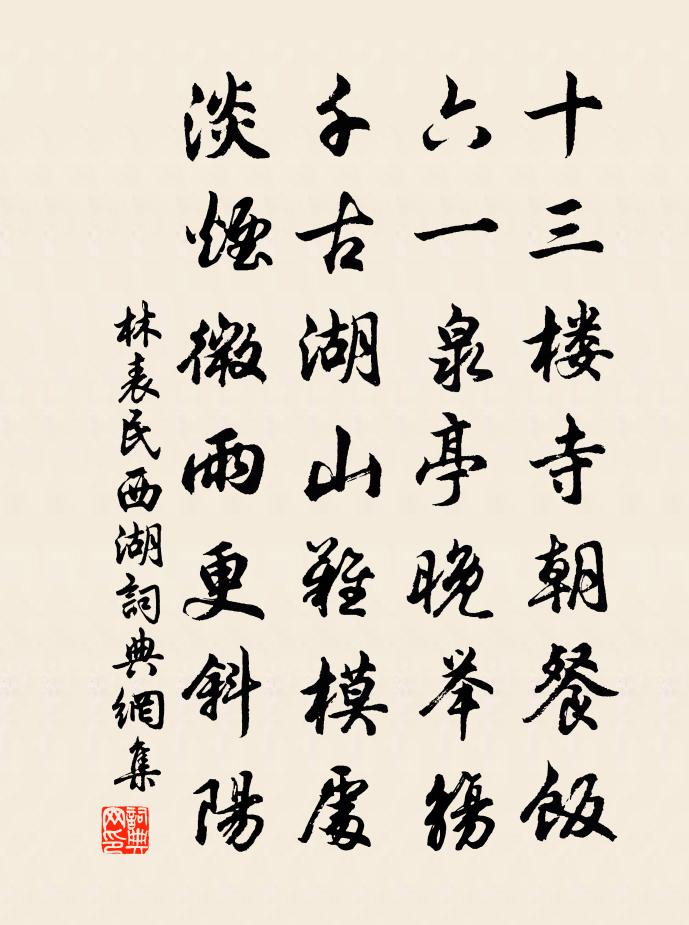 十三楼寺朝餐飯
六一泉亭晚举觴
千古湖山難模處
淡煙微雨更斜陽
林表民西湖詞典網集
詞典網印